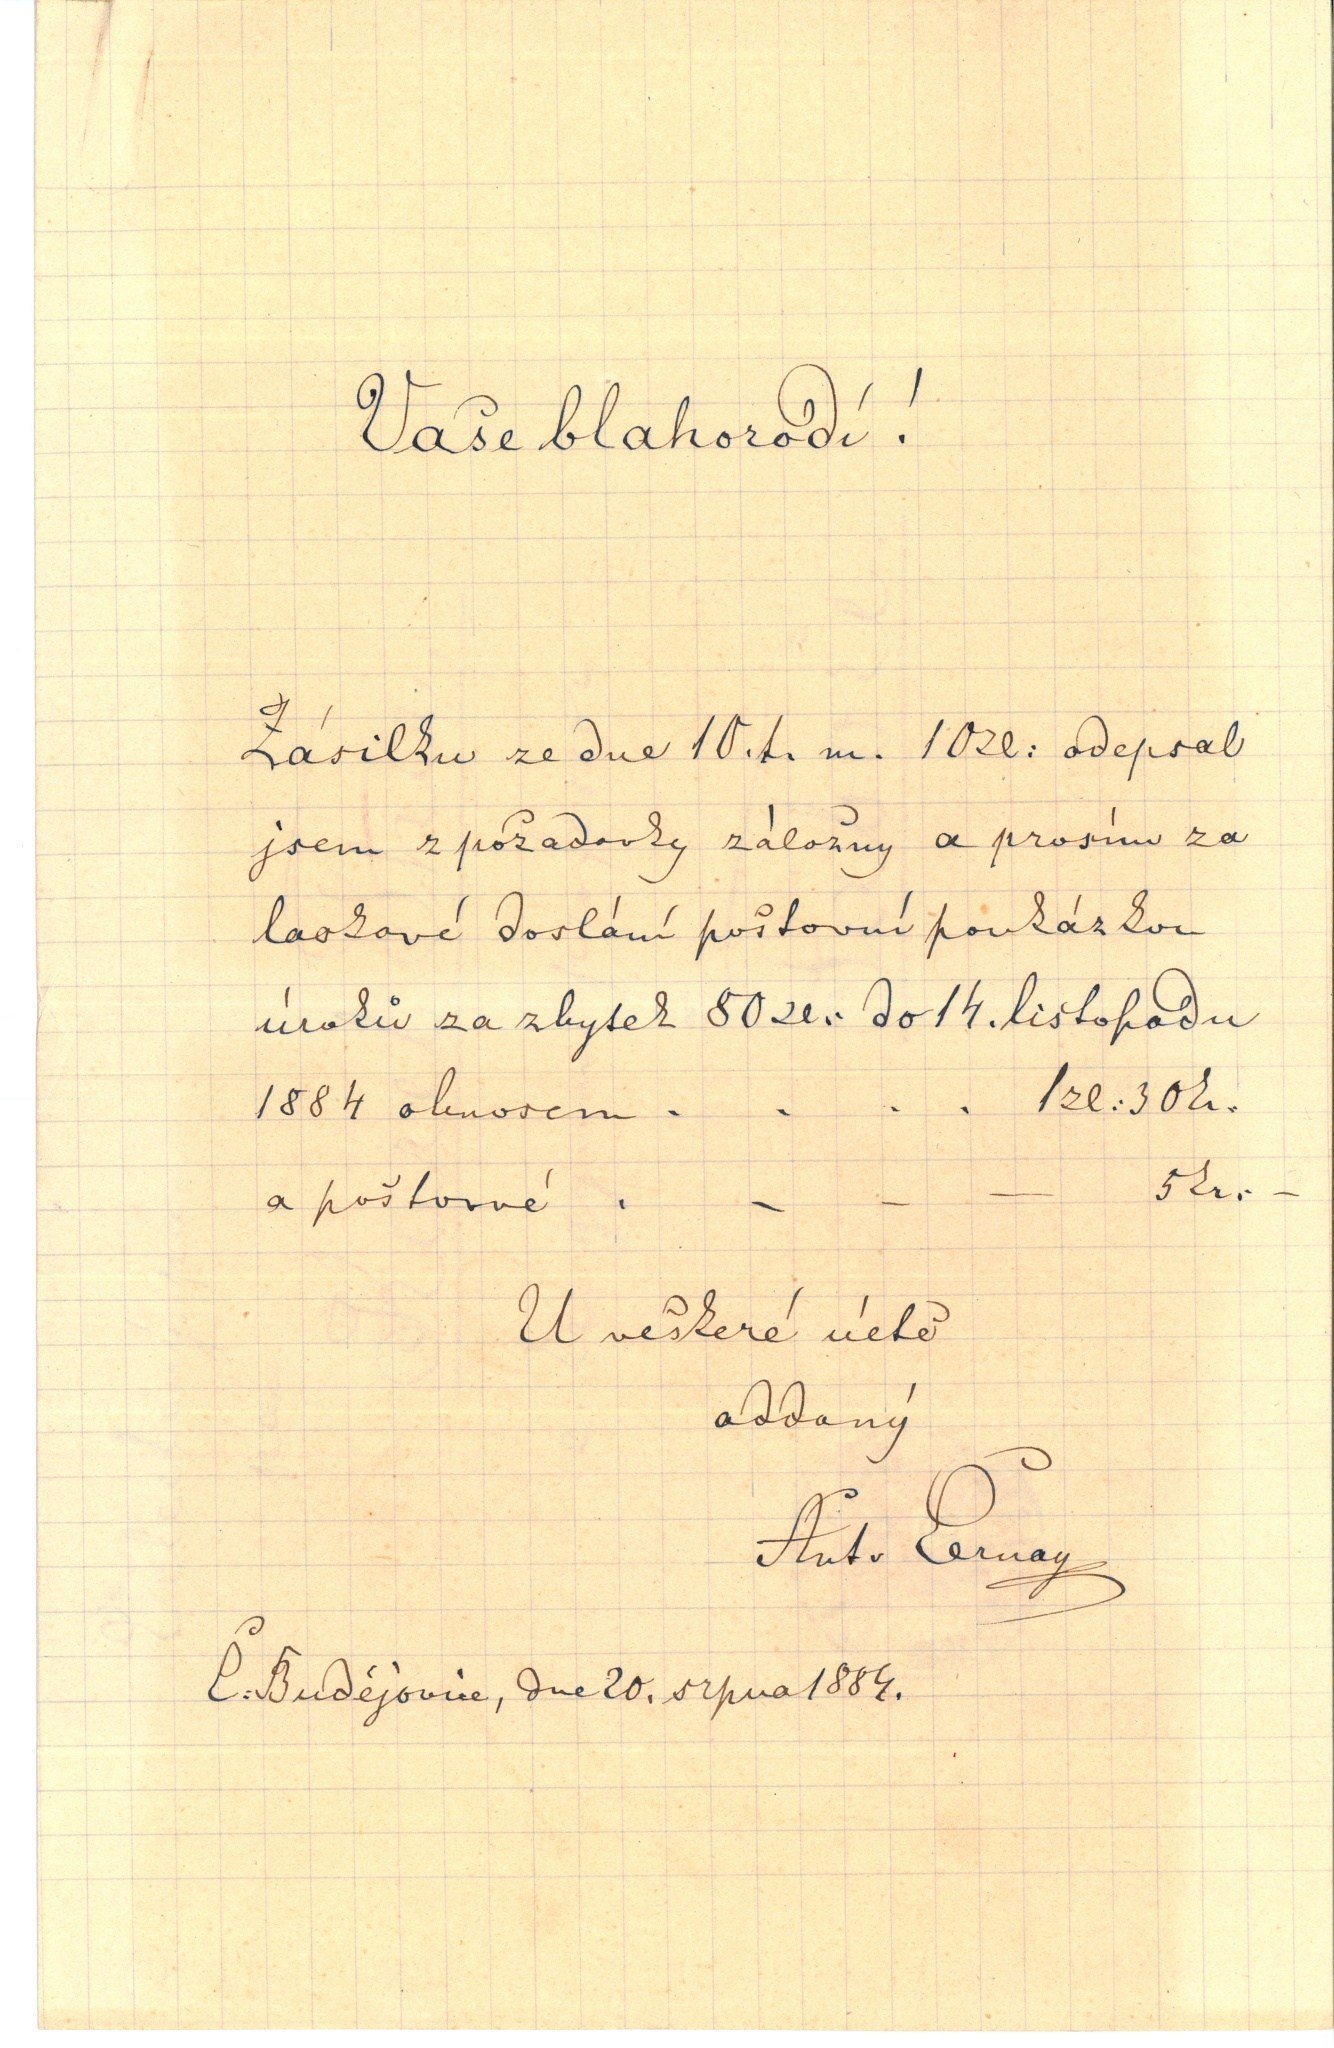 Vaše blahorodí!
Zásilku ze dne 10. t. m. 10 zl: odepsal
jsem z požadavky záložny a prosím za
laskavé doslání poštovní poukázkou
úroků za zbytek 80 zl: do 14. listopadu
1884 obnosem . . . . 1 zl: 30 kr.
a poštovné . - - — 5 kr: -
U veškeré úctě
oddaný
Ant. Černay
Č. Budějovice, dne 20. srpna 1884.